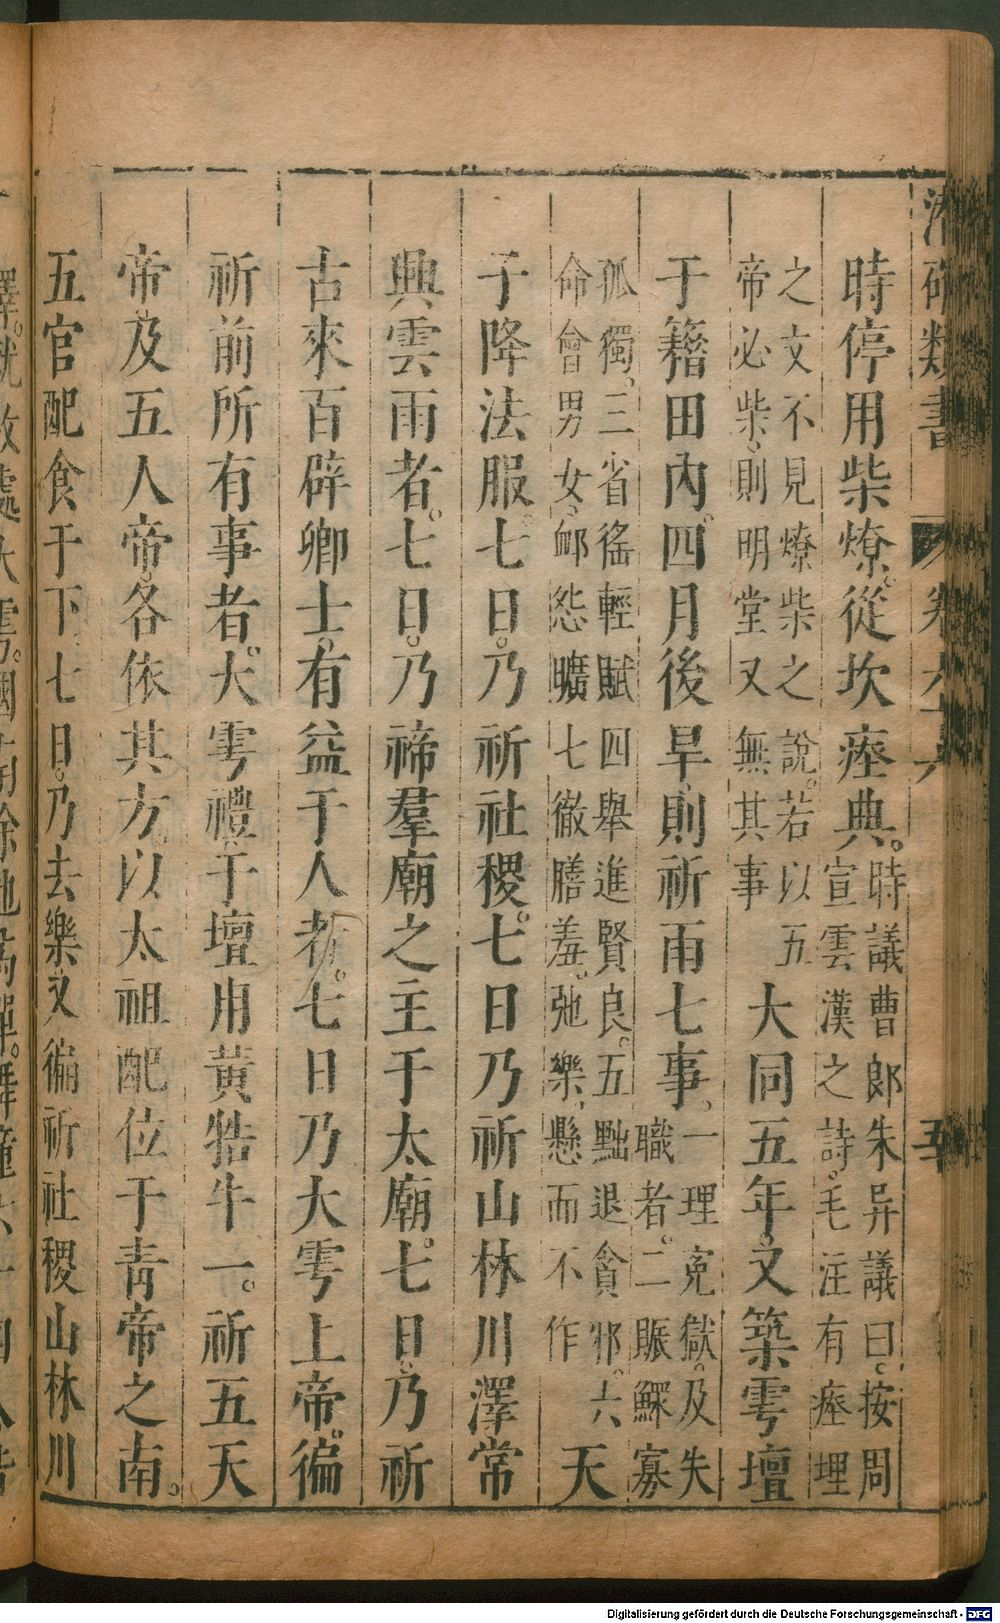 確類書
五
時停用柴燎。從坎瘞典。
時議曹郎朱异議曰。按周
宣雲漢之詩。毛注有瘞埋
之文不見燎柴之說。若以五
帝必柴。則明堂又無其事
大同五年。又築雩壇
于籍田內。四月後旱則祈雨七事。
一理寃獄。及失
職者。二賑鰥寡
孤獨。三省徭輕賦四舉進賢良。五黜退貪邪。六
命會男女。卹怨曠七徹膳羞。弛樂懸而不作
天
子降法服。七日。乃祈社稷。七日乃祈山林川澤常
興雲雨者。七日。乃禘羣廟之主于太廟。七日。乃祈
古來百辟卿士。有益于人者。七日乃大雩上帝。徧
祈前所有事者。大雩禮于壇用黃牲牛一。祈五天
帝。及五人帝。各依其方。以太祖配位于靑帝之南。
五官配食于下。七日。乃去樂。又徧祈社稷山林川
Digitalisierung gefördert durch die Deutsche Forschungsgemeinschaft - DFG